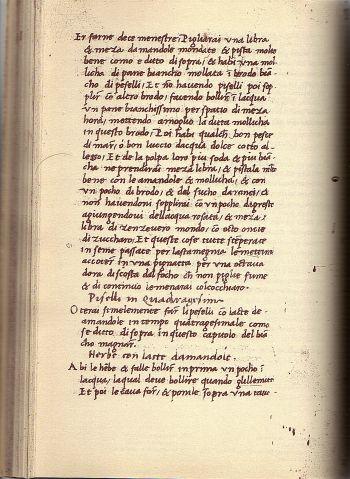 Per farne dece menestre: Pigliarai una libra
& meza damandole mondate & pista molto
bene como e ditto di sopra; & habi una mol
licha di pane biancho mollata i brodo bia
cho di peselli; Et nō havendo piselli poi sop
plir cō altro brodo, facendo bollir i lacqua
un pane bianchissimo per spatio di meza
hora, mettendo amoglio la ditta mollicha
in questo brodo; Poi habi qualch bon pesce
di mar, o bon luccio dacqua dolce cotto al
lesso; Et de la polpa loro piu soda & piu biā
cha ne prenderai meza libra, & pistala molto
bene con le amandole & mollicha, & con
un pocho di brodo, & dal sucho daranci, &
non havendoni sopplirai cō un poche dagresto
agiungendovi dellacqua rosata, & meza
libra di zenzevero mondo, cō otto oncie
di zuccharo; Et queste cose tutte stēperate
in seme passate per lastamegna le mettirai
accocer in una pignatta per una octava
dora discosta dal focho chi non piglie fume
& di continuo le menarai col cocchiaro.
Piselli in Quadragesima
Oterai similemente far li piselli cō latte de
amandole in tempo quatragesimale como
se ditto di sopra in questo capitolo del biā
cho magnar.
Herbe con latte damandole.
Abi le hēbe & falle bollir in prima un pocho i
lacqua, laqual deve bollire quando gullemitte
Et poi le cava for, & ponile sopra una tavo-